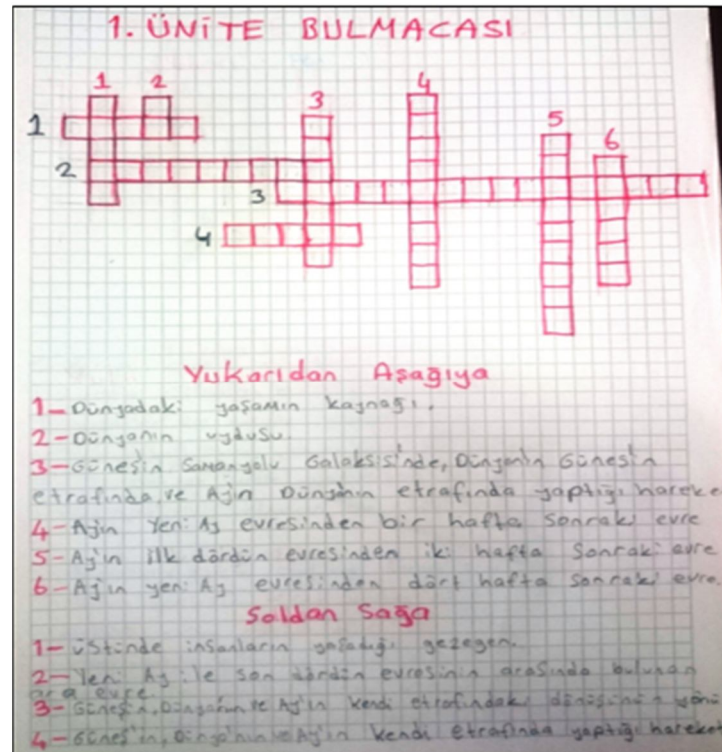 1. ÜNİTE BULMACASI
1 2 3 4 5 6
1
2
3
4
Yukarıdan Aşağıya
1- Dünyadaki yaşamın kaynağı.
2- Dünyanın uydusu.
3- Güneşin Samanyolu Galaksisi'nde, Dünyanın Güneş'in
etrafında, ve Ayın Dünyanın etrafında yaptığı hareke
4- Ayın Yeni Ay evresinden bir hafta sonraki evre
5- Ay'ın ilk dördün evresinden iki hafta sonraki evre
6- Ayın yeni Ay evresinden dört hafta sonraki evre
Soldan Sağa
1- üstünde insanların yaşadığı gezegen.
2- Yeni Ay ile son dördün evresinin arasında bulunan
ara evre
3- Güneş'in, Dünya'nın ve Ay'ın kendi etrafındaki dönüşünün yönü
4- Güneş'in, Dünya'nın ve Ay'ın kendi etrafında yaptığı hareket